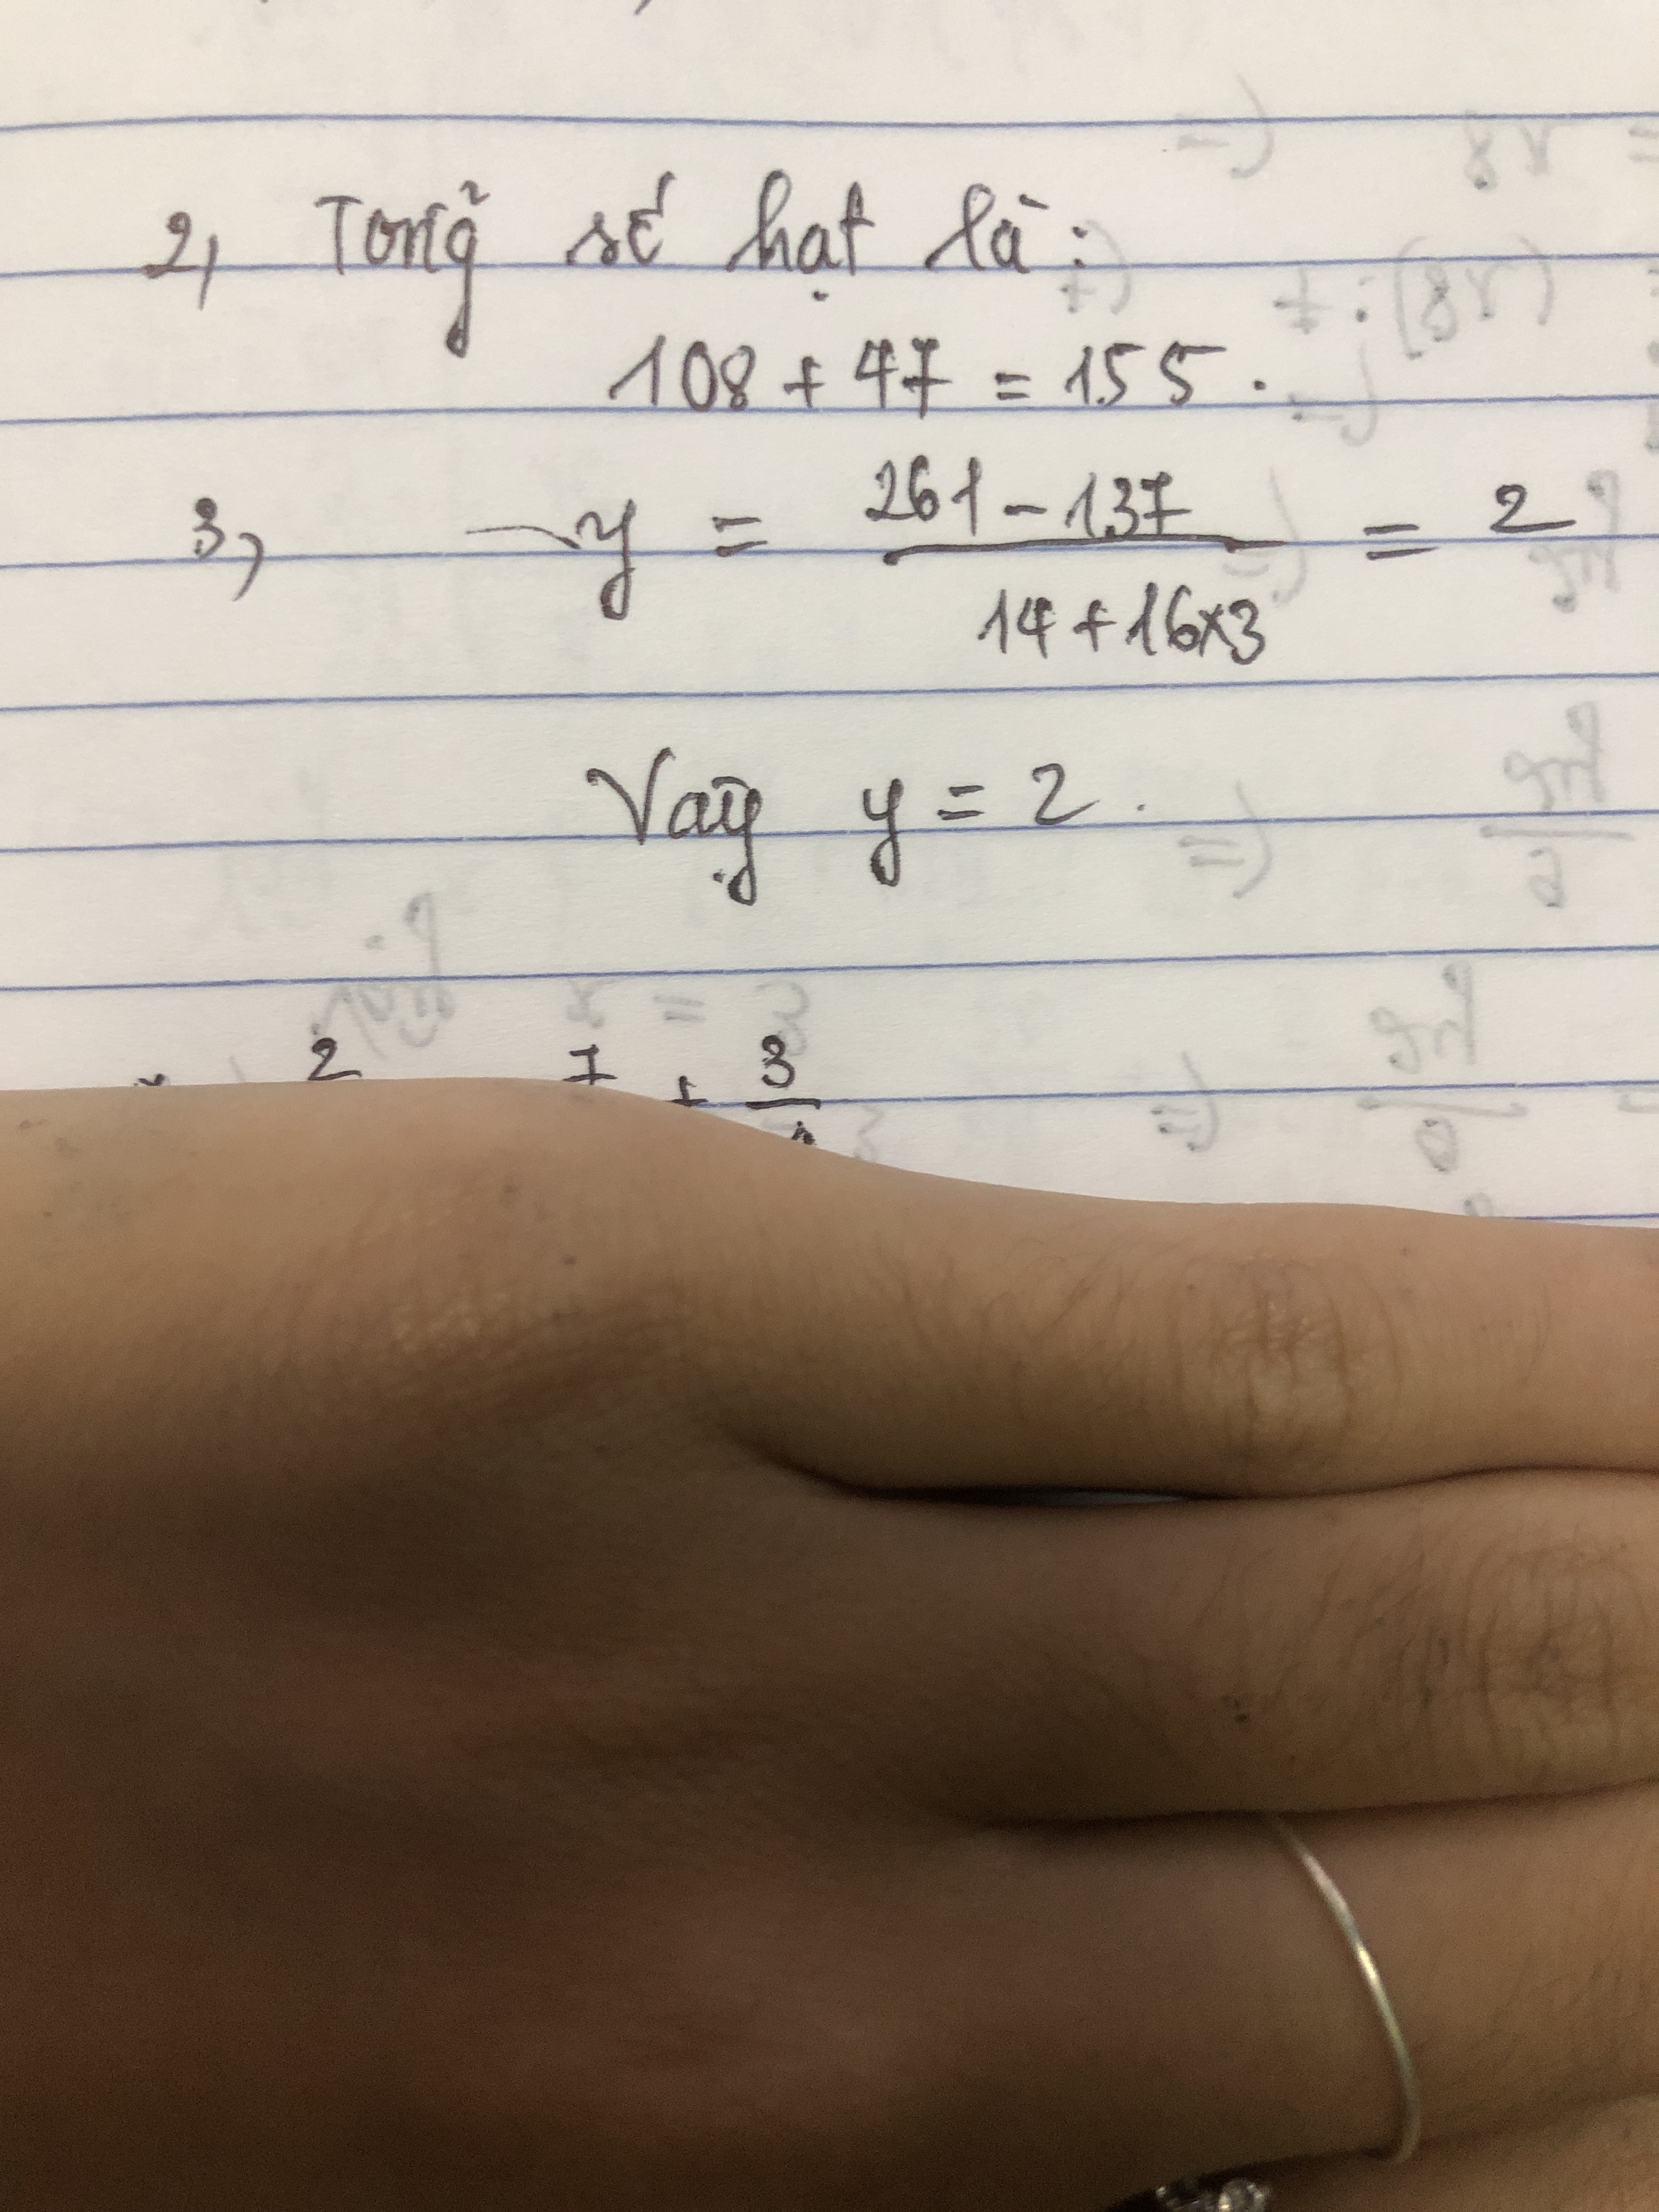 2, Tổng số hạt là:
108 + 47 = 155.
3, y = \frac{261 - 137}{14 + 16×3} = 2
Vậy y = 2.
2 7 + 3